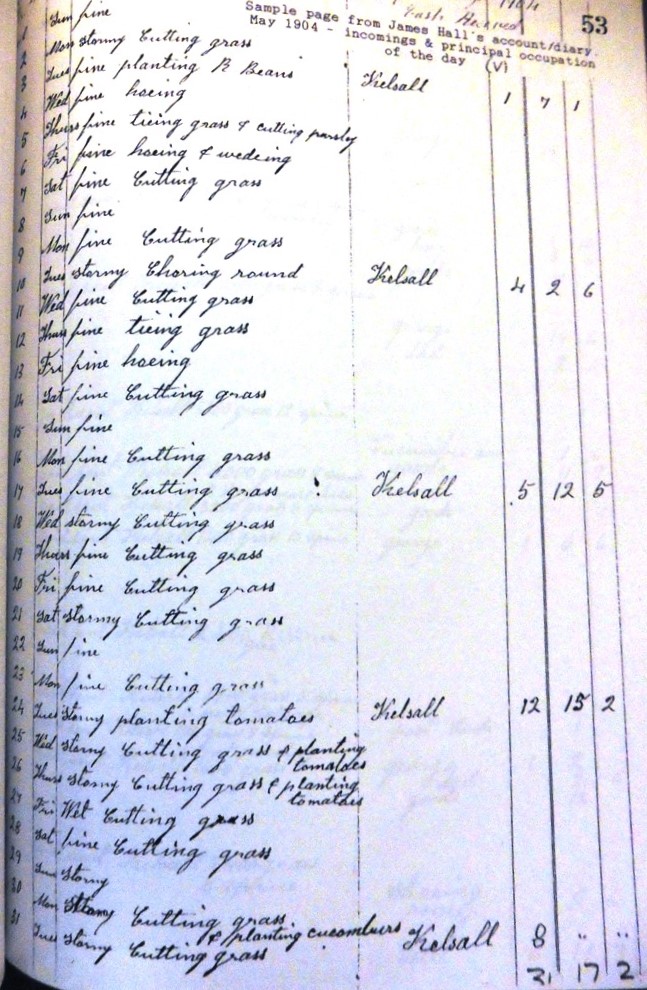 53
Cash Received
Sample page from James Hall's account/diary.
May 1904 - incomings & principal occupation
of the day (V)
1 Sun fine
2 Mon stormy Cutting grass
3 Tues fine planting R Beans Kelsall 1 7 1
4 Wed fine hoeing
5 Thurs fine tieing grass & cutting parsley
6 Fri fine hoeing & wedeing
7 Sat fine Cutting grass
8 Sun fine
9 Mon fine Cutting grass
10 Tues stormy Choring round Kelsall 4 2 6
11 Wed fine Cutting grass
12 Thurs fine tieing grass
13 Fri fine hoeing
14 Sat fine Cutting grass
15 Sun fine
16 Mon fine Cutting grass
17 Tues fine Cutting grass Kelsall 5 12 5
18 Wed stormy Cutting grass
19 Thurs fine Cutting grass
20 Fri fine Cutting grass
21 Sat stormy Cutting grass
22 Sun fine
23 Mon fine Cutting grass
24 Tues Stormy planting tomatoes Kelsall 12 15 2
25 Wed stormy Cutting grass & planting
tomatoes
26 Thurs stormy Cutting grass & planting
tomatoes
27 Fri Wet Cutting grass
28 Sat fine Cutting grass
29 Sun Stormy
30 Mon Stormy Cutting grass
& planting cucombers
31 Tues Stormy Cutting grass Kelsall 8 " "
31 17 2